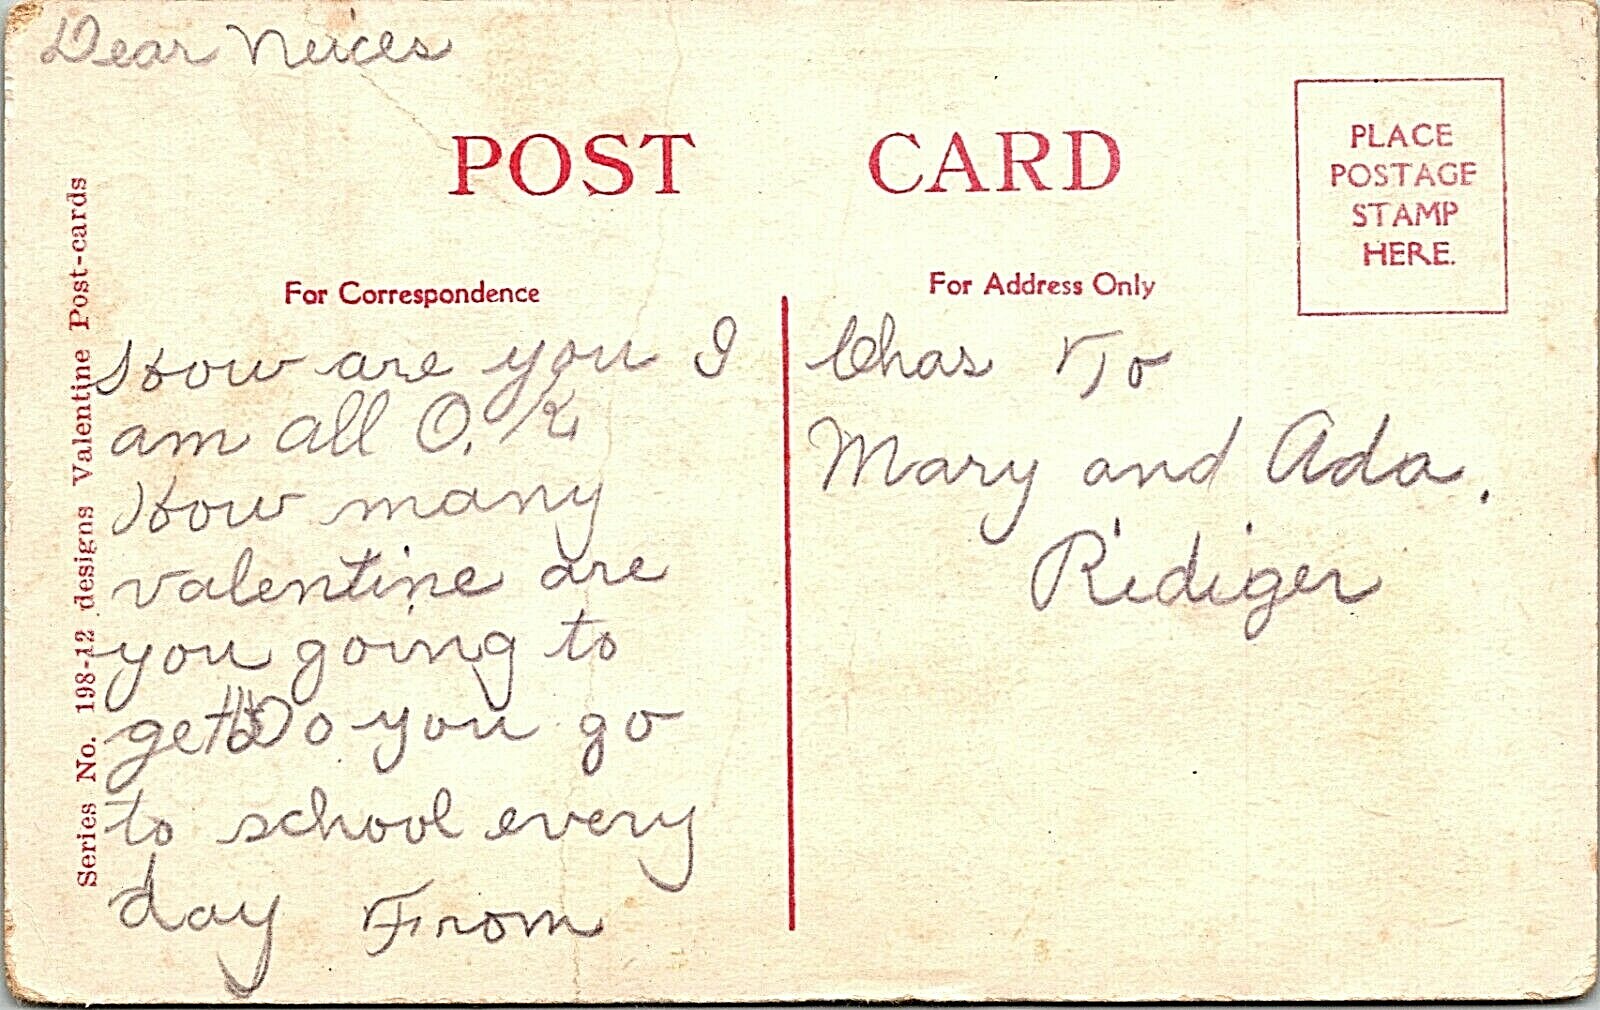 Dear Neices
POST CARD
PLACE
POSTAGE
STAMP
HERE.
For Correspondence
For Address Only
Series No. 198-12 designs Valentine Post-cards
How are you I
am all O.K
How many
valentine are
you going to
get Do you go
to school every
day From
Chas To
Mary and Ada.
Rediger